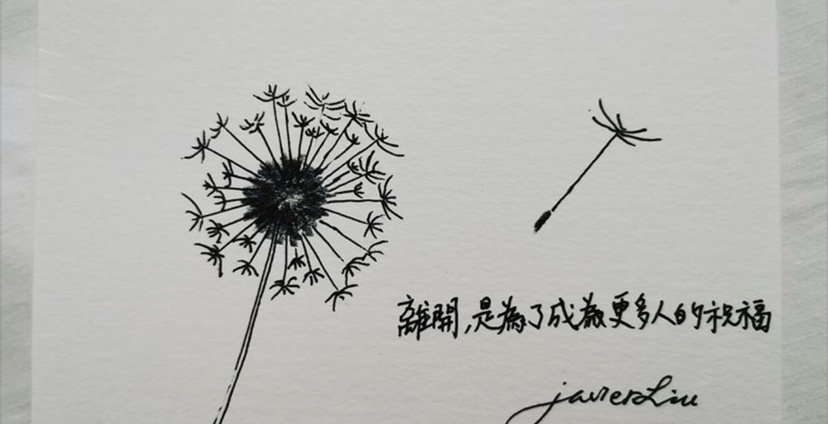 離開,是為了成為更多人的祝福
javierLiu